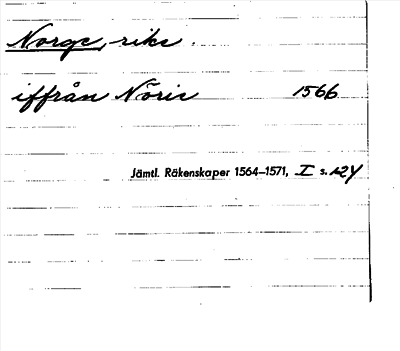 Norge, rike
iffrån Nöric 1566
Jämtl. Räkenskaper 1564–1571, I s. 124